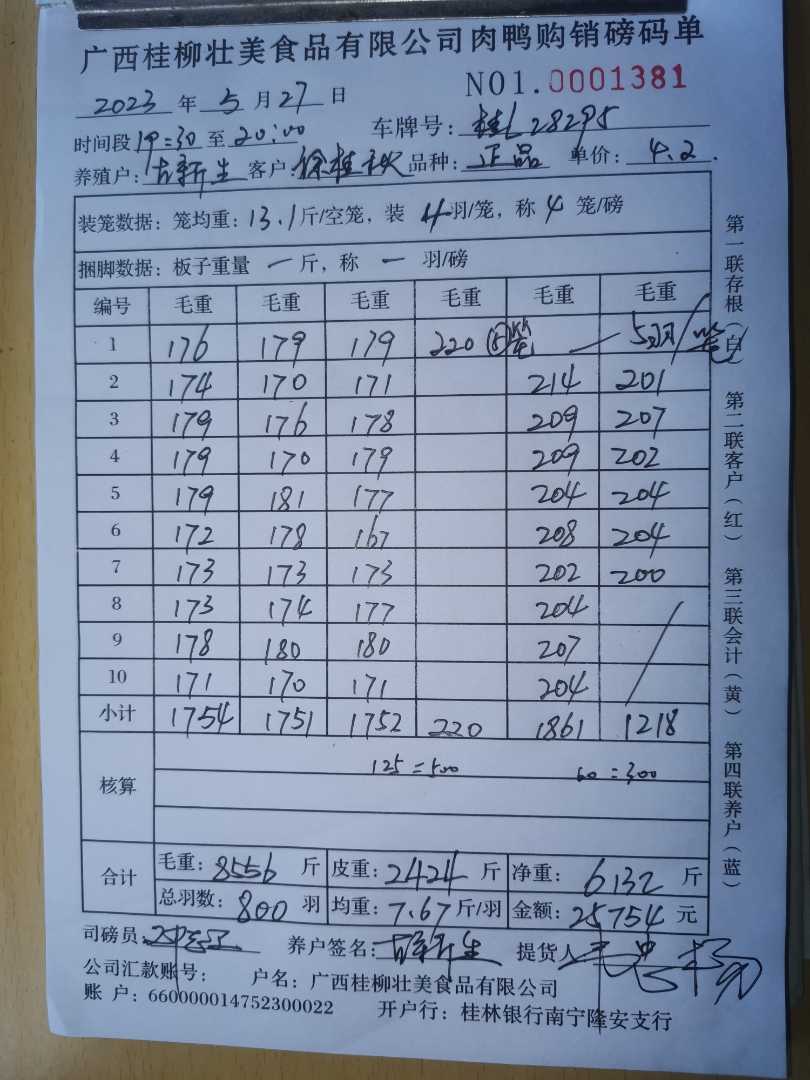 广西桂柳壮美食品有限公司肉鸭购销磅码单
2023 年 5 月 27 日 NO1.0001381
时间段 19:30 至 20:00 车牌号: 桂L28295
养殖户: 客户: 徐桂秋 品种: 正品 单价: 4.2.
装笼数据: 笼均重: 13.1 斤/空笼, 装 4 羽/笼, 称 4 笼/磅
捆脚数据: 板子重量 一 斤, 称 一 羽/磅
编号 毛重 毛重 毛重 毛重 毛重 毛重
1 176 179 179 220 (5笼) — 5羽/笼
2 174 170 171 214 201
3 179 176 178 209 207
4 179 170 179 209 202
5 179 181 177 204 204
6 172 178 167 208 204
7 173 173 173 202 200
8 173 174 177 204
9 178 180 180 207
10 171 170 171 204
小计 1754 1751 1752 220 1861 1218
核算 125=500 60=300
合计 毛重: 8556 斤 皮重: 2424 斤 净重: 6132 斤
总羽数: 800 羽 均重: 7.67 斤/羽 金额: 25754 元
司磅员: 养户签名: 提货人
公司汇款账号: 户名: 广西桂柳壮美食品有限公司
账 户: 660000014752300022 开户行: 桂林银行南宁隆安支行
第一联存根(白) 第二联客户(红) 第三联会计(黄) 第四联养户(蓝)